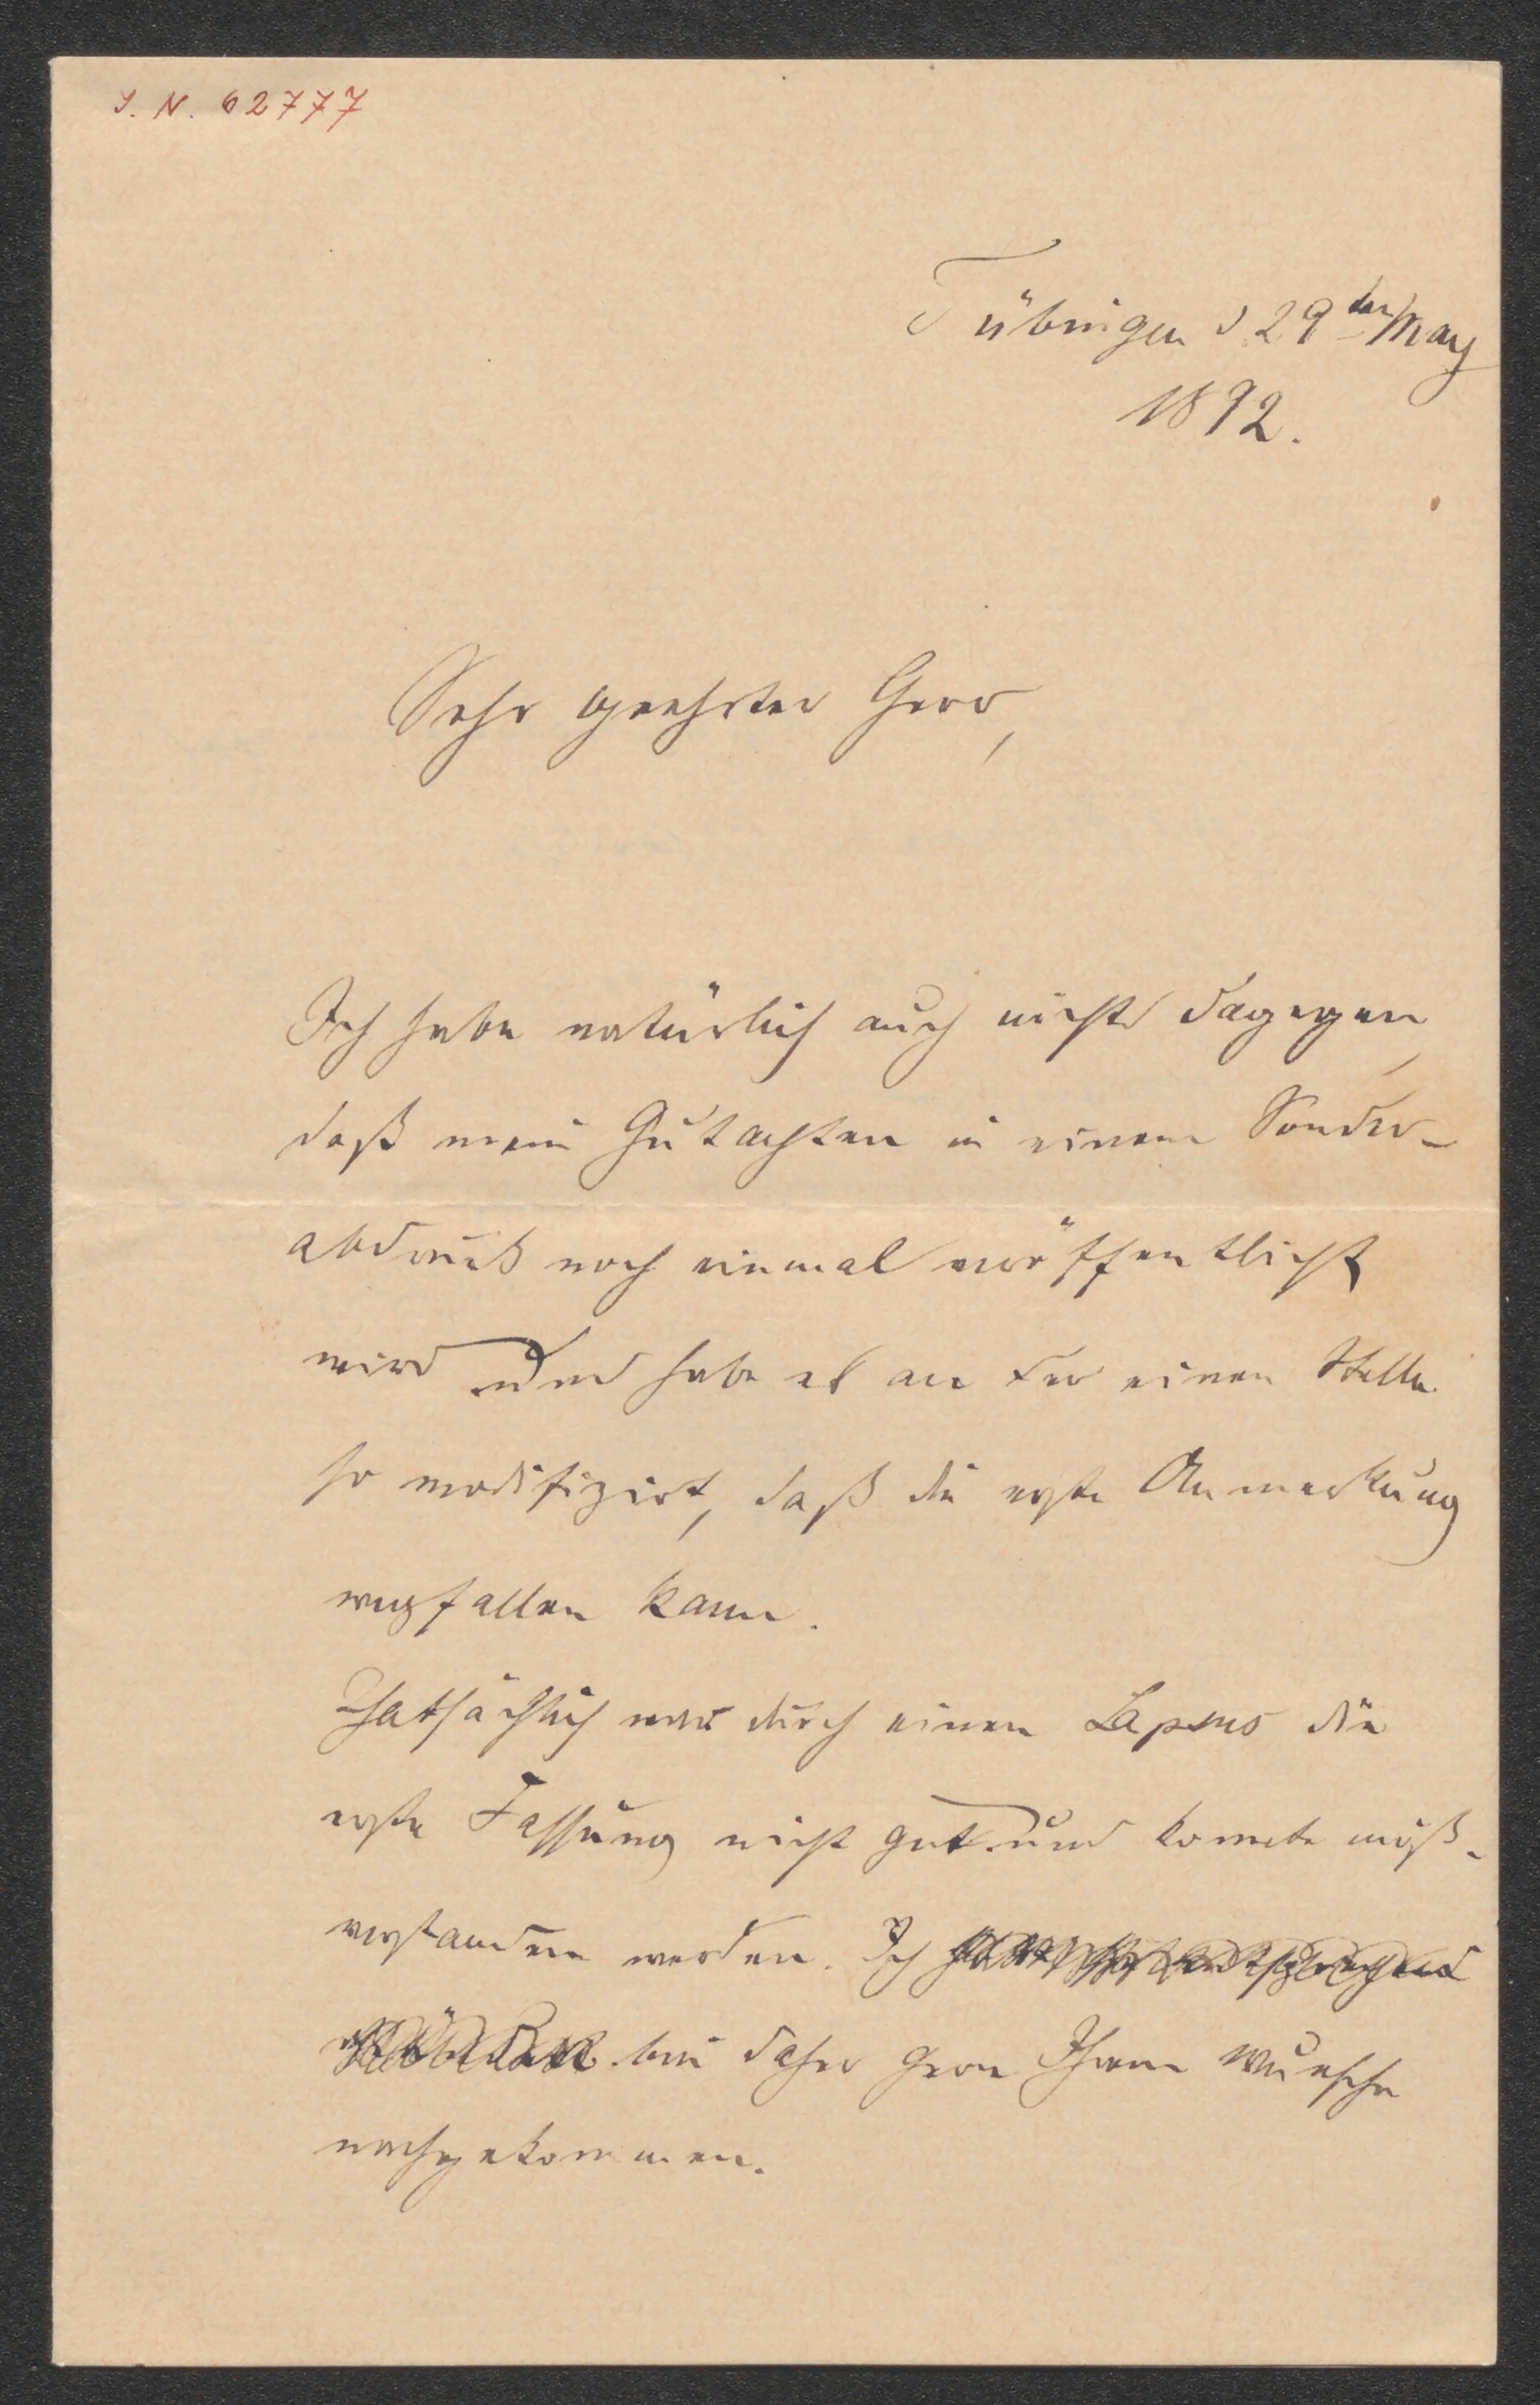 J. N. 62777
Tübingen d 29ten May
1892.
Sehr geehrter Herr,
Ich habe natürlich auch nichts dagegen,
daß mein Gutachten in einem Sonder-
abdruck noch einmal veröffentlicht
wird und habe es an der einen Stelle
so modifizirt, daß die erste Anmerkung
wegfallen kann.
Thatsächlich war durch einen Lapsus die
erste Fassung nicht gut und konnte miß-
verstanden werden. Ich
bin daher gern Ihrem Wunsche
nachgekommen.